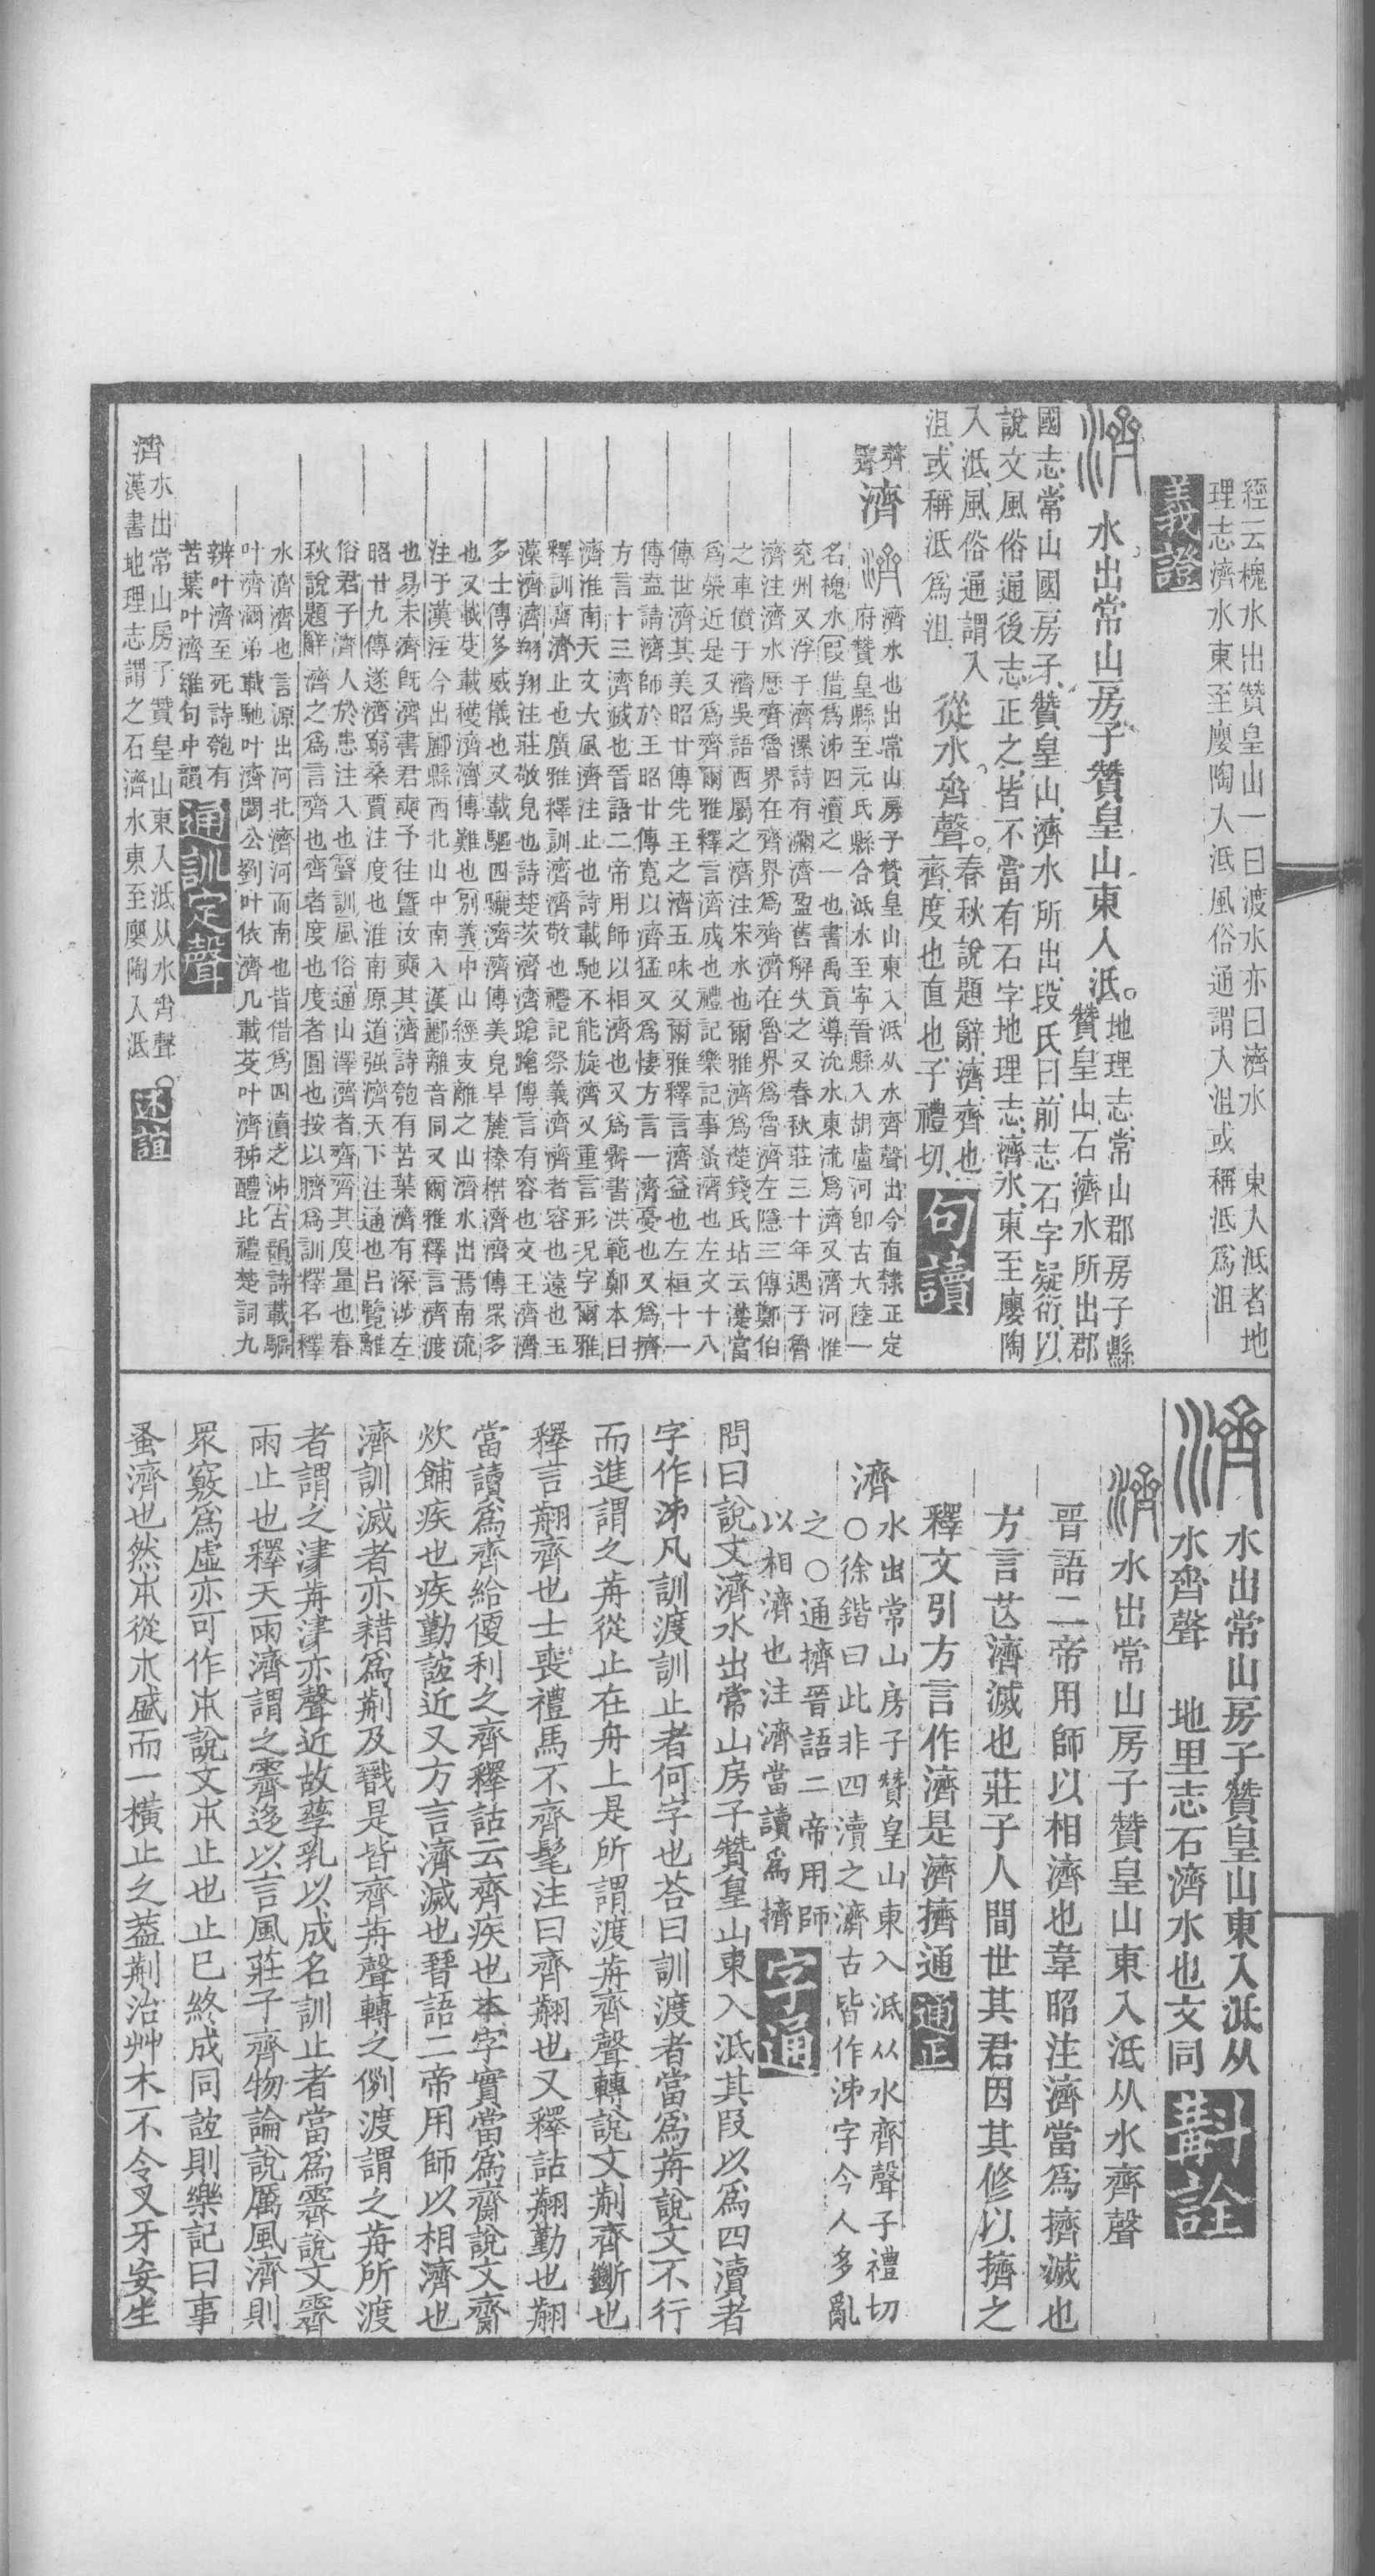 經云槐水出贊皇山一曰渡水亦曰濟水　東入泜者地
理志濟水東至廮陶入泜風俗通謂入沮或稱泜爲沮
義證
水出常山房子贊皇山東入泜。
地理志常山郡房子縣
贊皇山石濟水所出郡
國志常山國房子贊皇山濟水所出段氏曰前志石字疑衍以
說文風俗通後志正之皆不當有石字地理志濟水東至廮陶
入泜風俗通謂入
沮或稱泜爲沮
從水𠫼聲。
春秋說題辭濟齊也
齊度也直也子禮切
句讀
濟
濟水也出常山房子贊皇山東入泜从水齊聲出今直隸正定
府贊皇縣至元氏縣合泜水至寧晉縣入胡盧河卽古大陸一
名槐水叚借爲沛四瀆之一也書禹貢導沇水東流爲濟又濟河惟
兖州又浮于濟漯詩有瀰濟盈舊解失之又春秋莊三十年遇于魯
濟注濟水歷齊魯界在齊界爲齊濟在魯界爲魯濟左隱三傳鄭伯
之車僨于濟吳語西屬之濟注宋水也爾雅濟爲濋錢氏坫云濋當
爲滎近是又爲齊爾雅釋言濟成也禮記樂記事蚤濟也左文十八
傳世濟其美昭廿傳先王之濟五味又爾雅釋言濟益也左桓十一
傳盍請濟師於王昭廿傳寬以濟猛又爲悽方言一濟憂也又爲擠
方言十三濟滅也晉語二帝用師以相濟也又爲霽書洪範鄭本曰
濟淮南天文大風濟注止也詩載馳不能旋濟又重言形況字爾雅
釋訓濟濟止也廣雅釋訓濟濟敬也禮記祭義濟濟者容也遠也玉
藻濟濟翔翔注莊敬皃也詩楚茨濟濟蹌蹌傳言有容也文王濟濟
多士傳多威儀也又載驅四驪濟濟傳美皃旱麓榛楛濟濟傳眾多
也又載芟載穫濟濟傳難也別義中山經支離之山濟水出焉南流
注于漢注今出酈縣西北山中南入漢酈離音同又爾雅釋言濟渡
也易未濟旣濟書君奭予往曁汝奭其濟詩匏有苦葉濟有深涉左
昭廿九傳遂濟窮桑賈注度也淮南原道強濟天下注通也呂覽離
俗君子濟人於患注入也聲訓風俗通山澤濟者齊齊其度量也春
秋說題辭濟之爲言齊也齊者度也度者圓也按以臍爲訓釋名釋
水濟濟也言源出河北濟河而南也皆借爲四瀆之沛古韻詩載驅
叶濟瀰弟載馳叶濟閟公劉叶依濟几載芟叶濟秭醴比禮楚詞九
辨叶濟至死詩匏有
苦葉叶濟雉句中韻
通訓定聲
濟
水出常山房子贊皇山東入泜从水𠫼聲。
漢書地理志謂之石濟水東至廮陶入泜
述誼
水出常山房子贊皇山東入泜从
水𠫼聲　地里志石濟水也文同
斠詮
水出常山房子贊皇山東入泜从水齊聲
晉語二帝用師以相濟也韋昭注濟當爲擠滅也
方言㠯濟滅也莊子人間世其君因其修以擠之
釋文引方言作濟是濟擠通
通正
濟
水出常山房子贊皇山東入泜从水齊聲子禮切
○徐鍇曰此非四瀆之濟古皆作沛字今人多亂
之○通擠晉語二帝用師
以相濟也注濟當讀爲擠
字通
問曰說文濟水出常山房子贊皇山東入泜其叚以爲四瀆者
字作沛凡訓渡訓止者何字也荅曰訓渡者當爲歬說文不行
而進謂之歬從止在舟上是所謂渡歬齊聲轉說文剏齊斷也
釋言翦齊也士喪禮馬不齊髦注曰齊翦也又釋詁翦勤也翦
當讀爲齊給便利之齊釋詁云齊疾也本字實當爲齌說文齌
炊餔疾也疾勤誼近又方言濟滅也晉語二帝用師以相濟也
濟訓滅者亦耤爲剏及戩是皆齊歬聲轉之例渡謂之歬所渡
者謂之津歬津亦聲近故孳乳以成名訓止者當爲霽說文霽
雨止也釋天雨濟謂之霽迻以言風莊子齊物論說厲風濟則
眾竅爲虛亦可作𣎵說文𣎵止也止已終成同誼則樂記曰事
蚤濟也然𣎵從朩盛而一橫止之葢剏治艸木不令叉牙妄生